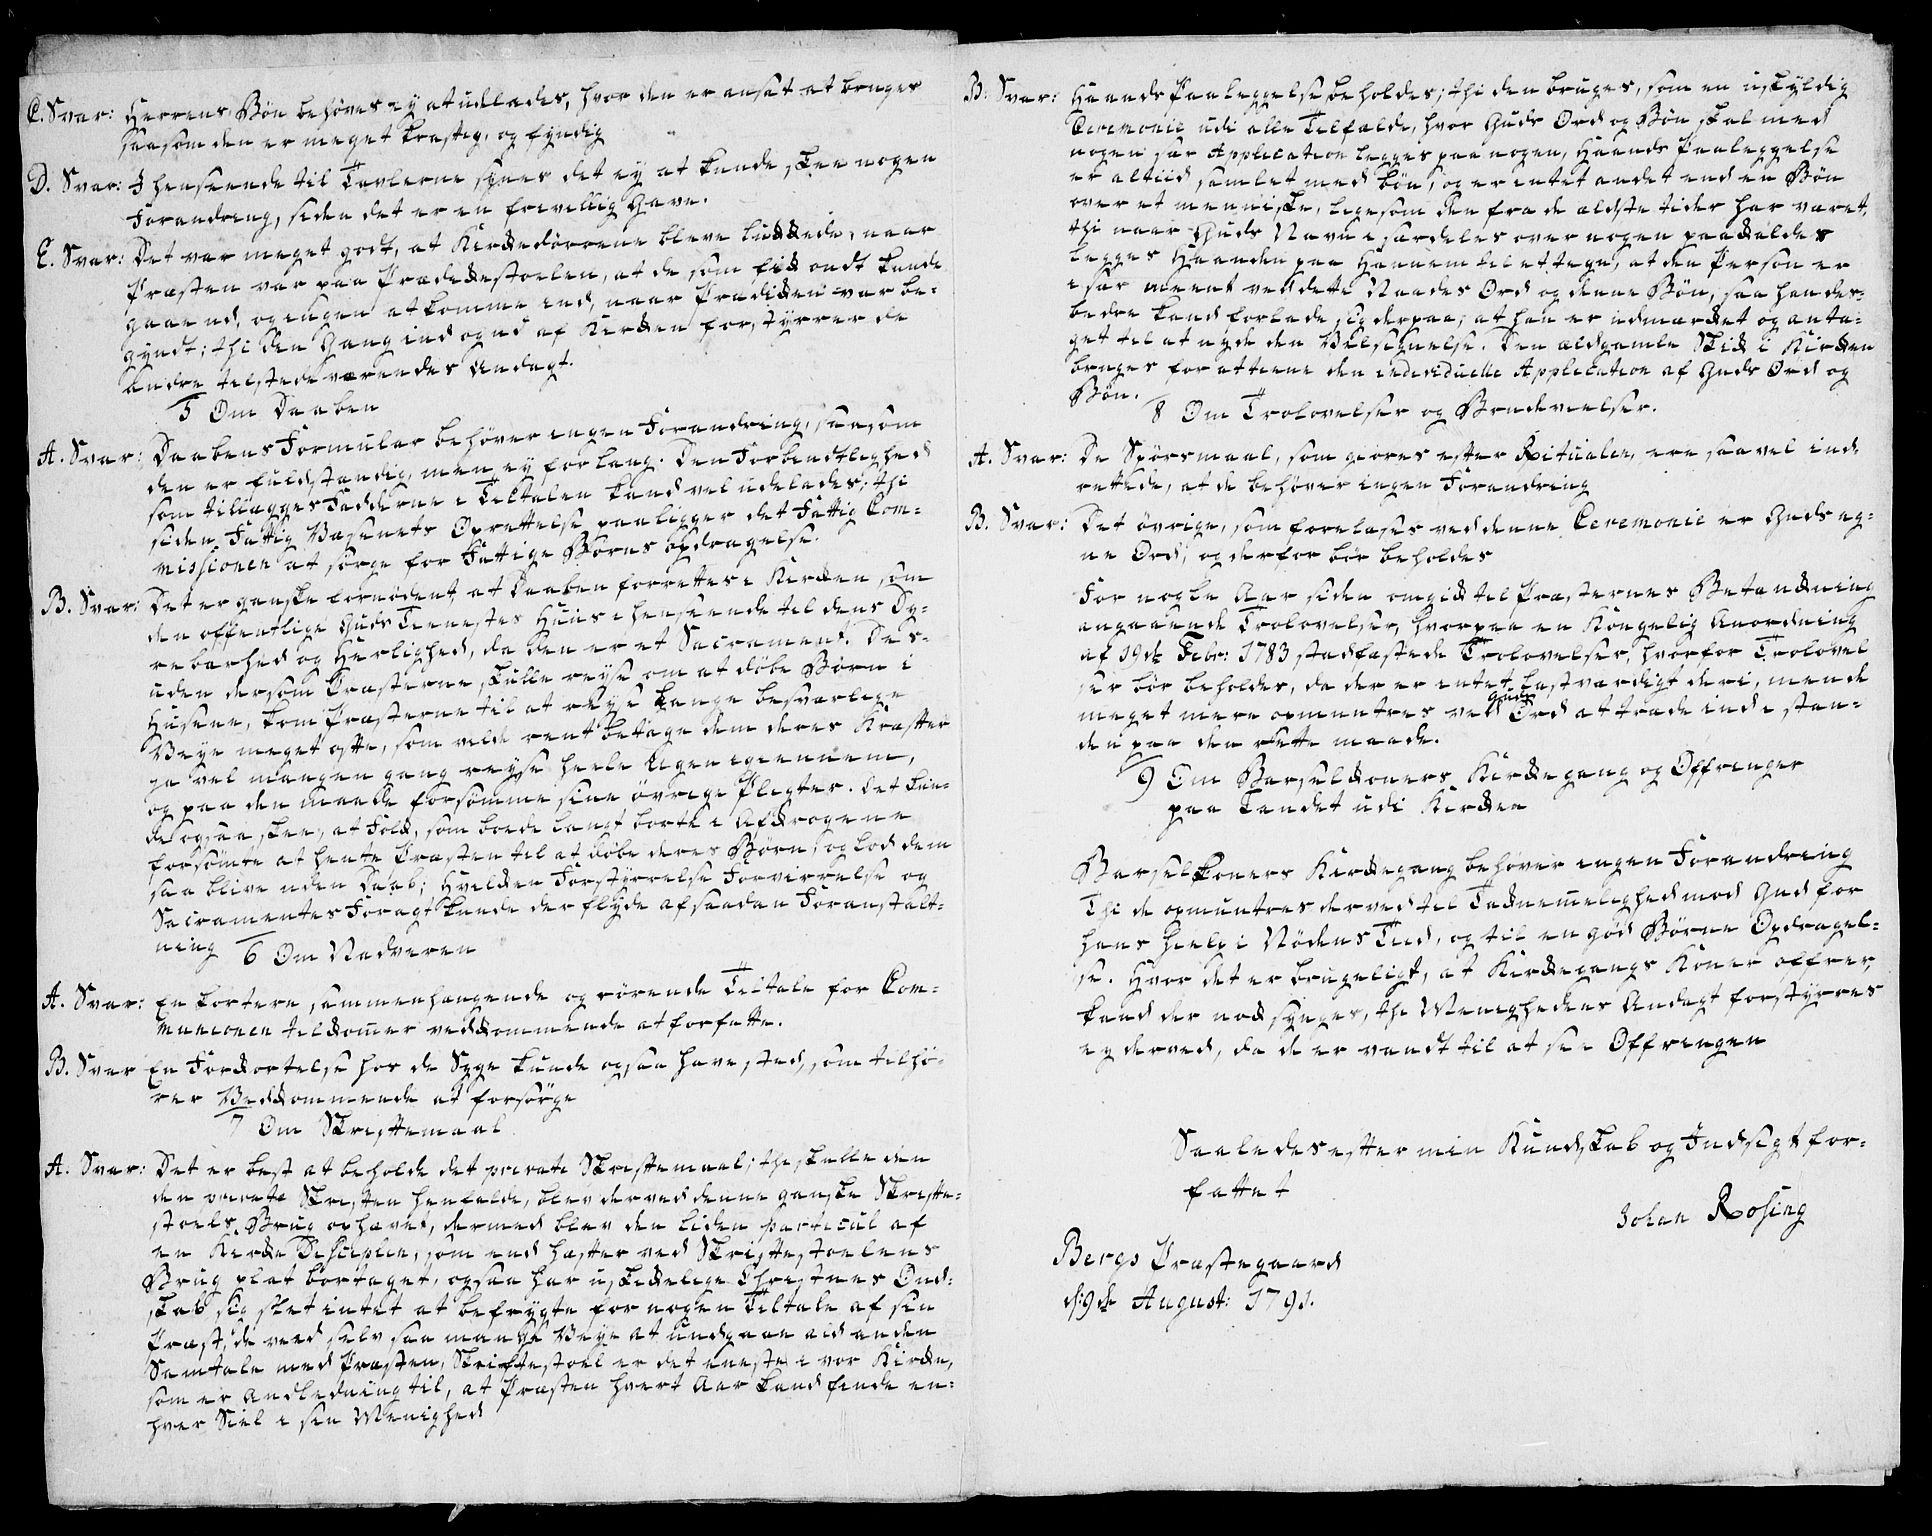 C. Svar: Herrens Bøn behøves ey at udlades, hvor den er ansat at bruges
saasom den er meget kraftig, og fyndig
D. Svar: I henseende til Tavlerne synes det ey at kunde skee nogen
Forandring, siden det er en frivillig Gave.
E. Svar: Det var meget godt, at Kirkedørrene bleve lukkede, naar
Præsten var paa Prædikestoelen, at de som fik ondt kunde
gaae ud, og ingen at komme ind, naar Prædiken var be-
gyndt; thi den Gang ind og ud af Kirken forstyrrer de
andre tilstedeværendes Andagt.
5 Om Daaben
A. Svar: Daabens Formular behøver ingen Forandring, saasom
den er fuldstændig, men ey for lang. Den Forbindtlighed
som tillægges Fadderne i Tiltalen kand vel udelades; thi
siden Fattig Væsenets Oprettelse paaligger det Fattig Com-
missionen at sørge for Fattige Børns opdragelse.
B. Svar: Det er ganske fornødent, at Daaben forrettes i Kirken som
den offentlige Guds Tienestes Huus i henseende til dens Dy-
rebarhed og Herlighed, da den er et Sacrament. Des-
uden dersom Præsterne skulle reyse om at døbe Børn i
Husene, kom Præsterne til at reyse lange besværlige
Veye meget ofte, som vilde rent betage dem deres Kræfter
ja vel mangen gang reyse heele Ugen igiennem,
og paa den maade forsømme sine øvrige Pligter. Det kun-
de ogsaa skee, at Folk, som boede langt borte i Afkrogene
forsømte at hente Præsten til at døbe deres Børn, og lod dem
saa blive uden Daab; Hvilken Forstyrrelse Forvirrelse og
Sacramentes Foragt kunde der flyde af saadan Foranstalt-
ning
6 Om Nadveren
A. Svar: En kortere sammenhængende og rørende Tiltale for Com-
munionen tilkommer vedkommende at forfatte.
B. Svar En Forkortelse hos de Syge kunde ogsaa have sted, som tilhø-
rer Vedkommende at forsørge
7 Om Skriftemaal
A. Svar: Det er best at beholde det private Skriftemaal; thi skulle den
den private Skriften henfalde, blev derved denne ganske Skrifte-
stoels Brug ophævet, dermed blev den liden particul af
en Kirke Disciplin, som end hæfter ved Skriftestoelens
Brug plat bortaget, ogsaa har uskikkelige Christnes Ond-
skab sig slet intet at befrygte for nogen Tiltale af sin
Præst, de veed selv saa mange Veye at undgaae ald anden
Samtale med Præsten, Skriftestoel er det eneste i vor Kirke,
som er Andledning til, at Præsten hvert Aar kand finde en-
hver Siel i sin Menighed
B. Svar: Haands Paaleggelse beholdes; thi den bruges, som en uskyldig
Ceremonie udi alle Tilfælde, hvor Guds Ord og Bøn skal med
nogen sær Application legges paa nogen, Haands Paaleggelse
er altiid samlet med bøn, og er intet andet end en Bøn
over et menniske, ligesom den fra de ældste tider har været,
thi naar Guds Navn i særdeles over nogen paakaldes
legges Haanden paa Hannem til et tegn, at den Person er
i sær meent ved dette Naades Ord og denne Bøn, saa han des-
bedre kand forlade sig derpaa, at han er udmærket og anta-
get til at nyde den Velsignelse. Den ældgamle Skik i Kirken
bruges for at tiene den individuelle Application af Guds Ord og
Bøn.
8 Om Trolovelser og Brudevielser.
A. Svar: De Spørsmaal, som giøres efter Ritualen, ere saavel ind-
rettede, at de behøver ingen Forandring
B. Svar: Det øvrige, som forelæses ved denne Ceremonie er Guds eg-
ne Ord, og derfor bør beholdes
For nogle Aar siden omgik til Præsternes Betænkning
angaaende Trolovelser, hvorpaa en Kongelig Anordning
af 19de Febr: 1783 stadfæstede Trolovelser, hvorfor Trolovel
ser bør beholdes, da der er intet lastværdigt deri, men de
meget mere opmuntres ved Guds Ord at træde ind i stan-
den paa den rette maade.
9 Om Barselkoners Kirkegang og Offringer
paa Landet udi Kirken
Barselkoners Kirkegang behøver ingen Forandring
Thi de opmuntres derved til Taknemmelighed mod Gud for
hans hielp i Nødens Tiid, og til en god Børne Opdragel-
se. Hvor det er brugeligt, at Kirkegangs Koner offrer,
kand der nok synges, thi Menighedens Andagt forstyrres
ey derved, da de er vandt til at see Offringen
Saaledes efter min Kundskab og Indsigt for-
fattet
Johan Rosing
Bergs Præstegaard
d: 9de August: 1791.